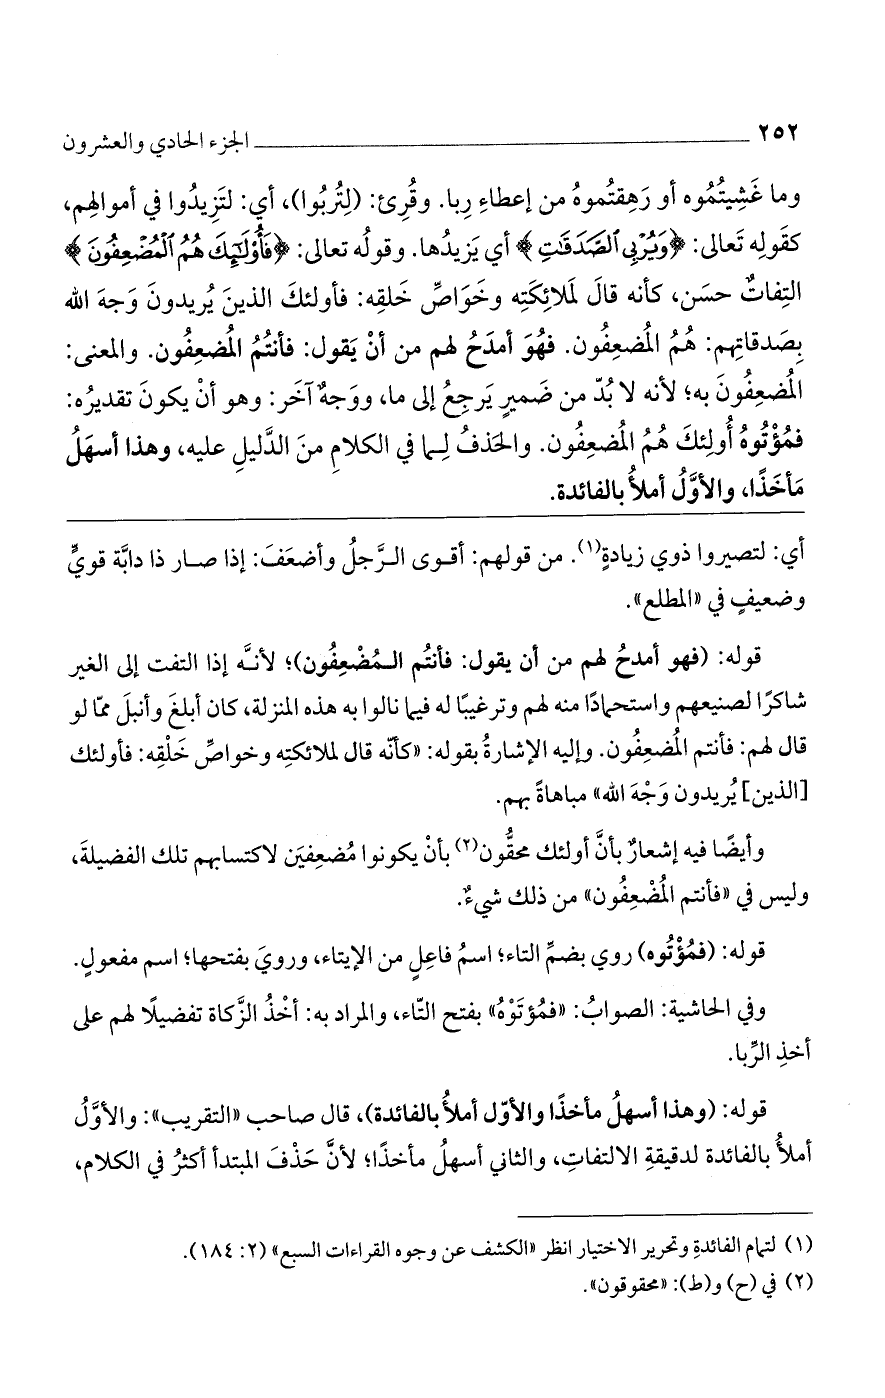 ٢٥٢ ــــــــــــــــــــ الجزء الحادي والعشرون
وما غَشِيتُمُوه أو رَهِقتُموهُ من إعطاءِ رِبا. وقُرِئ: (لِتُرْبُوا)، أي: لتَزِيدُوا في أموالهِم،
كقَولِه تَعالى: ﴿وَيُرْبِي ٱلصَّدَقَٰتِ﴾ أي يَزيدُها. وقولُه تعالى: ﴿فَأُوْلَٰٓئِكَ هُمُ ٱلْمُضْعِفُونَ﴾
التِفاتٌ حسَن، كأنه قالَ لملائِكَتِه وخَواصِّ خَلقِه: فأولئكَ الذينَ يُريدونَ وَجهَ الله
بِصَدقاتِهم: هُمُ المُضعِفُون. فهُوَ أمدَحُ لهم من أنْ يَقول: فأنتُمُ المُضعِفُون. والمعنى:
المُضعِفُونَ به؛ لأنه لا بُدّ من ضَميرٍ يَرجِعُ إلى ما، ووَجهٌ آخَر: وهو أنْ يكونَ تقديرُه:
فمُؤْتُوهُ أُولئِكَ هُمُ المُضعِفُون. والحَذفُ لِـما في الكلامِ منَ الدَّليلِ عليه، وهذا أسهَلُ
مَأخَذًا، والأوَّلُ أملأُ بالفائدة.
أي: لتصيروا ذوي زيادةٍ(١). من قولهم: أقـوى الـرَّجلُ وأضعَفَ: إذا صـار ذا دابَّة قويٍّ
وضعيفٍ في «المطلع».
قوله: (فهو أمدحُ لهم من أن يقول: فأنتُم الـمُضْعِفُون)؛ لأنـَّه إذا التفت إلى الغير
شاكرًا لصنيعهم واستحمادًا منه لهم وترغيبًا له فيما نالوا به هذه المنزلة، كان أبلغَ وأنبلَ ممّا لو
قال لهم: فأنتم المُضعِفُون. وإليه الإشارةُ بقوله: «كأنّه قال لملائكتِه وخواصِّ خَلْقِه: فأولئك
[الذين] يُريدون وَجْهَ الله» مباهاةً بهم.
وأيضًا فيه إشعارٌ بأنَّ أولئك محقُّون(٢) بأنْ يكونوا مُضعِفيَن لاكتسابهم تلك الفضيلةَ،
وليس في «فأنتم المُضْعِفُون» من ذلك شيءٌ.
قوله: (فمُؤْتُوه) روي بضمِّ التاء؛ اسمُ فاعِلٍ من الإيتاء، ورويَ بفتحها؛ اسم مفعولٍ.
وفي الحاشية: الصوابُ: «فمُؤتَوْهُ» بفتح التّاء، والمراد به: أخْذُ الزَّكاة تفضيلًا لهم على
أخذِ الرِّبا.
قوله: (وهذا أسهلُ مأخذًا والأوّل أملأُ بالفائدة)، قال صاحب «التقريب»: والأوَّلُ
أملأُ بالفائدة لدقيقةِ الالتفاتِ، والثاني أسهلُ مأخذًا؛ لأنَّ حَذْفَ المبتدأ أكثرُ في الكلام،
(١) لتمام الفائدةِ وتحرير الاختيار انظر «الكشف عن وجوه القراءات السبع» (٢: ١٨٤).
(٢) في (ح) و(ط): «محقوقون».